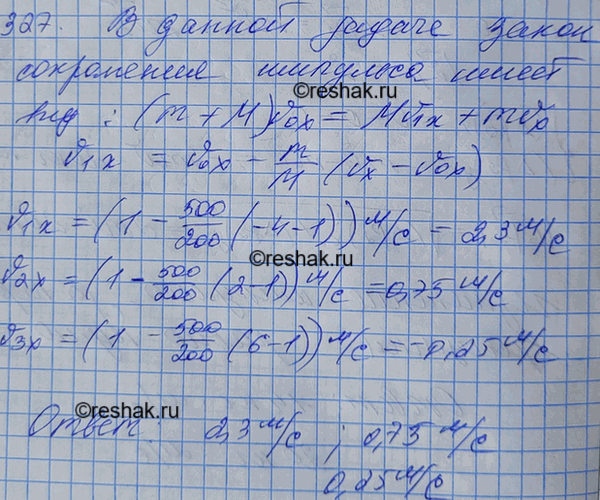 327. В данной задаче закон
сохранения импульса имеет
©reshak.ru
вид: (m + M)v₀ₓ = Mv₁ₓ + mvₓ
v₁ₓ = v₀ₓ - m/M (vₓ - v₀ₓ)
v₁ₓ = (1 - 500/200 (-4-1)) м/с = 2,3 м/с
©reshak.ru
v₂ₓ = (1 - 500/200 (2-1)) м/с = 0,75 м/с
v₃ₓ = (1 - 500/200 (6-1)) м/с = -0,25 м/с
©reshak.ru
Ответ: 2,3 м/с ; 0,75 м/с
0,25 м/с